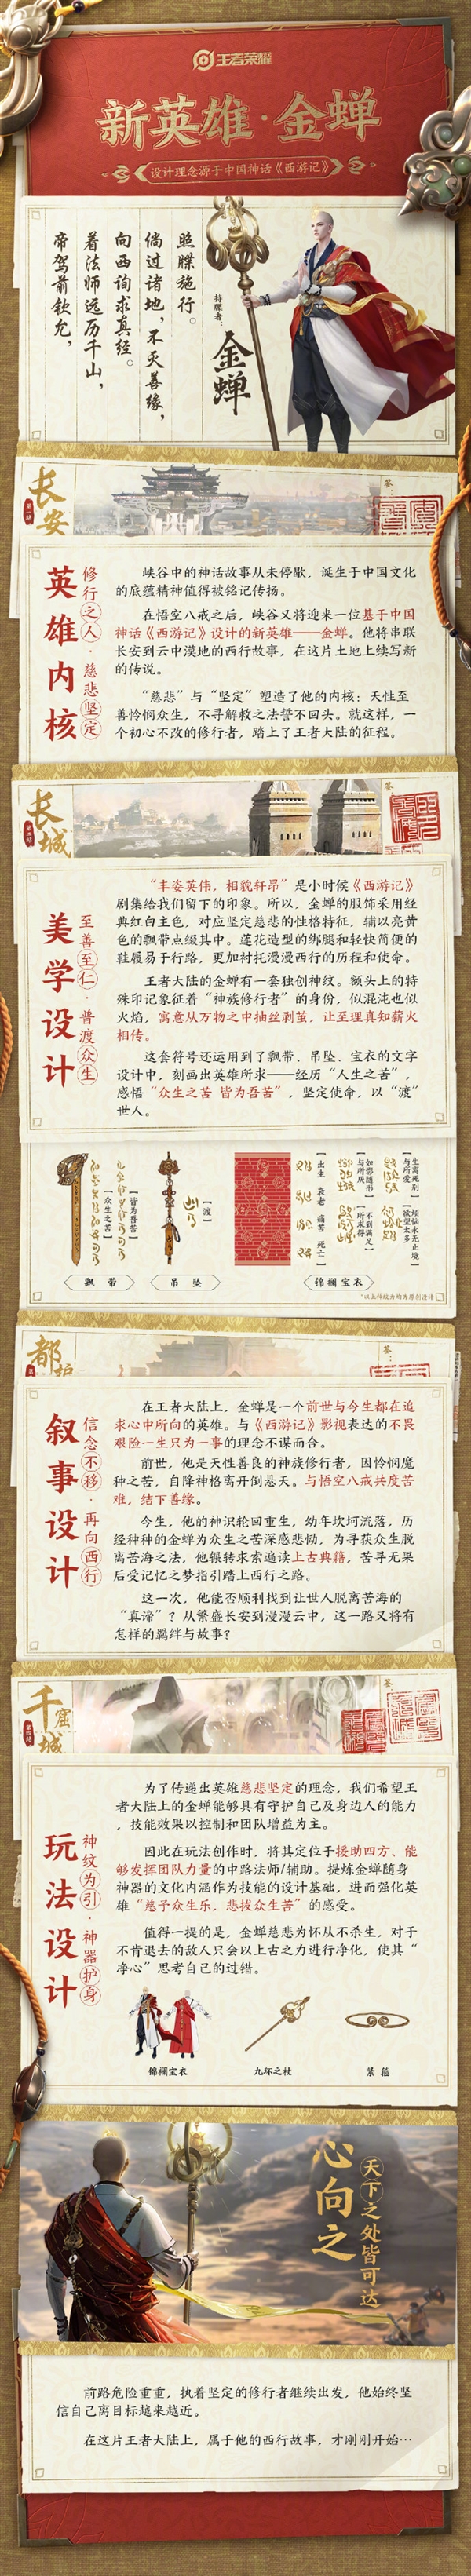 王者荣耀
新英雄·金蝉
设计理念源于中国神话《西游记》
照牒施行。
倘过诸地，不灭善缘，
向西询求真经。
着法师远历千山，
帝驾前钦允，
持牒者：
金蝉
长安
第一站
签：
英雄内核
修行之人·慈悲坚定
峡谷中的神话故事从未停歇，诞生于中国文化
的底蕴精神值得被铭记传扬。
在悟空八戒之后，峡谷又将迎来一位基于中国
神话《西游记》设计的新英雄——金蝉。他将串联
长安到云中漠地的西行故事，在这片土地上续写新
的传说。
“慈悲”与“坚定”塑造了他的内核：天性至
善怜悯众生，不寻解救之法誓不回头。就这样，一
个初心不改的修行者，踏上了王者大陆的征程。
长城
签：
美学设计
至善至仁·普渡众生
“丰姿英伟，相貌轩昂”是小时候《西游记》
剧集给我们留下的印象。所以，金蝉的服饰采用经
典红白主色，对应坚定慈悲的性格特征，辅以亮黄
色的飘带点缀其中。莲花造型的绑腿和轻快简便的
鞋履易于行路，更加衬托漫漫西行的历程和使命。
王者大陆的金蝉有一套独创神纹。额头上的特
殊印记象征着“神族修行者”的身份，似混沌也似
火焰，寓意从万物之中抽丝剥茧，让至理真知薪火
相传。
这套符号还运用到了飘带、吊坠、宝衣的文字
设计中，刻画出英雄所求——经历“人生之苦”，
感悟“众生之苦 皆为吾苦”，坚定使命，以“渡”
世人。
【众生之苦】
【皆为吾苦】
【渡】
出生 衰老 病苦 死亡
飘带
吊坠
锦襕宝衣
*以上神纹为均为原创设计
都护
签：
叙事设计
信念不移·再向西行
在王者大陆上，金蝉是一个前世与今生都在追
求心中所向的英雄。与《西游记》影视表达的不畏
艰险一生只为一事的理念不谋而合。
前世，他是天性善良的神族修行者，因怜悯魔
种之苦，自降神格离开倒悬天。与悟空八戒共度苦
难，结下善缘。
今生，他的神识轮回重生，幼年坎坷流落，历
经种种的金蝉为众生之苦深感悲恸，为寻获众生脱
离苦海之法，他辗转求索遍读上古典籍，苦寻无果
后受记忆之梦指引踏上西行之路。
这一次，他能否顺利找到让世人脱离苦海的
“真谛”？从繁盛长安到漫漫云中，这一路又将有
怎样的羁绊与故事？
千窟城
第四站
签：
玩法设计
神纹为引·神器护身
为了传递出英雄慈悲坚定的理念，我们希望王
者大陆上的金蝉能够具有守护自己及身边人的能力
，技能效果以控制和团队增益为主。
因此在玩法创作时，将其定位于援助四方、能
够发挥团队力量的中路法师/辅助。提炼金蝉随身
神器的文化内涵作为技能的设计基础，进而强化英
雄“慈予众生乐，悲拔众生苦”的感受。
值得一提的是，金蝉慈悲为怀从不杀生，对于
不肯退去的敌人只会以上古之力进行净化，使其“
净心”思考自己的过错。
锦襕宝衣
九环之杖
紧箍
心向之
天下之处皆可达
前路危险重重，执着坚定的修行者继续出发，他始终坚
信自己离目标越来越近。
在这片王者大陆上，属于他的西行故事，才刚刚开始…